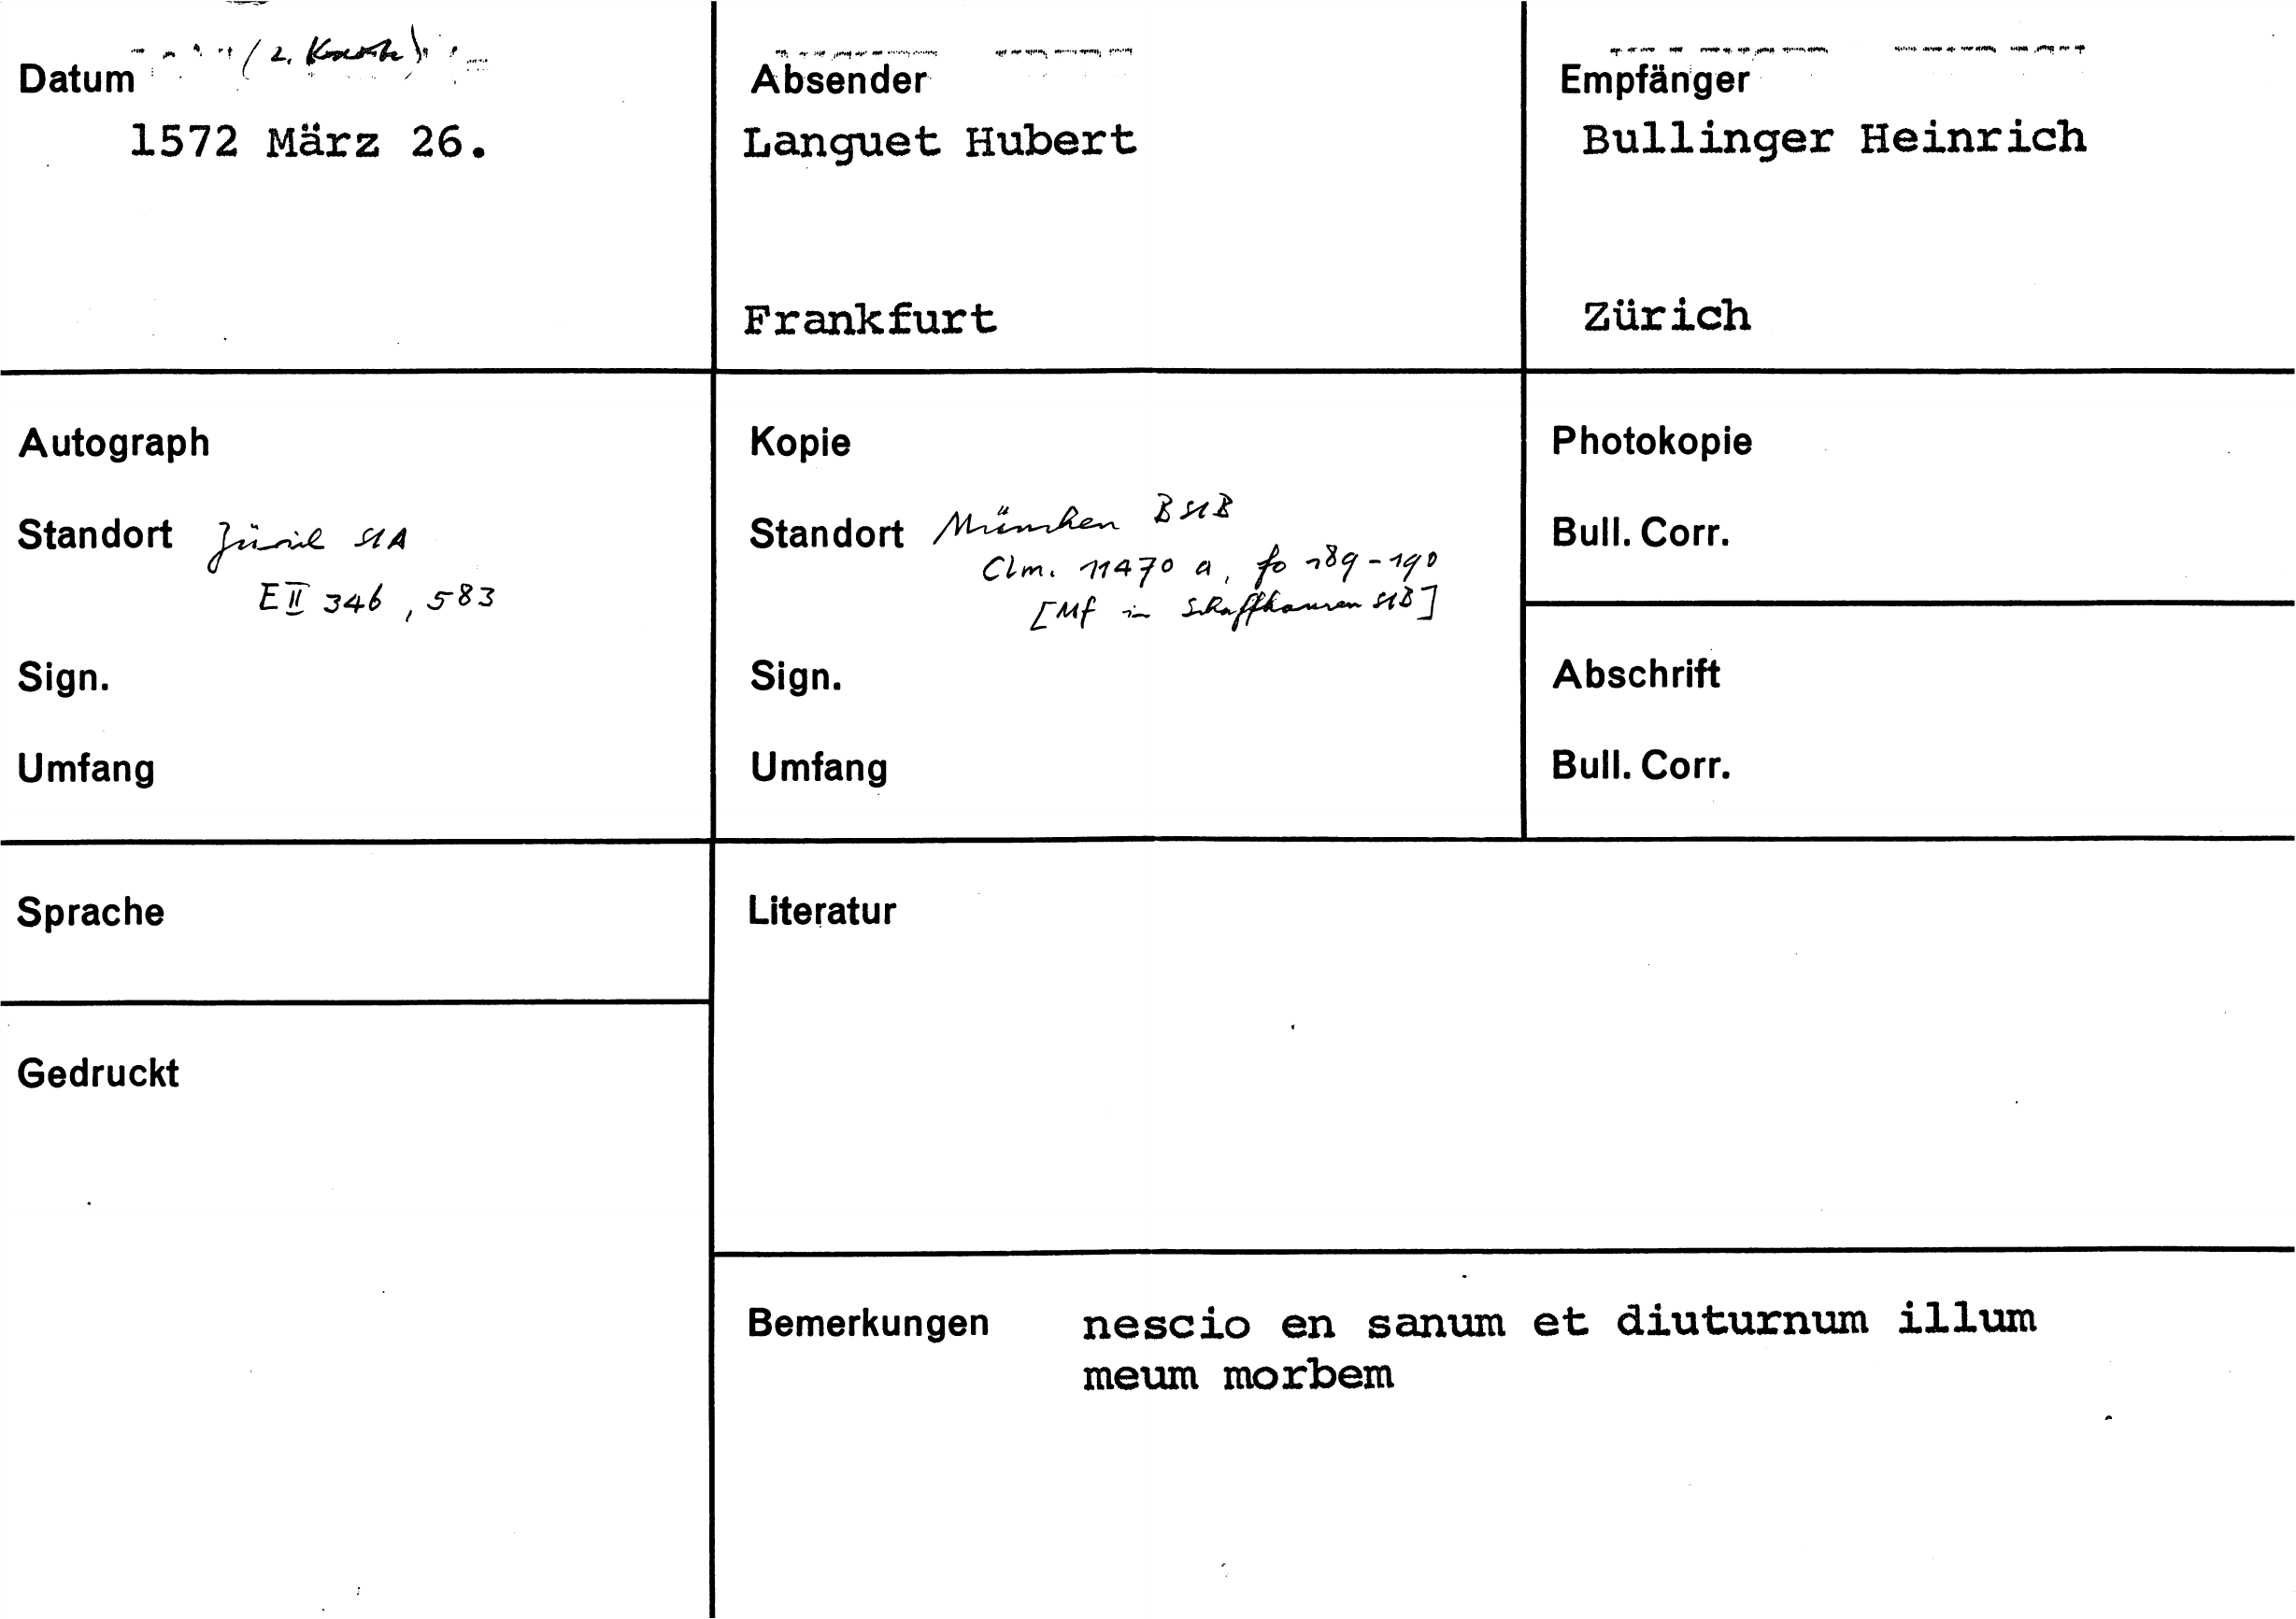 Datum
1572 März 26.
Absender
Languet Hubert
Frankfurt
Empfänger
Bullinger Heinrich
Zürich
Autograph
Standort Zürich StA
E II 346, 583
Sign.
Umfang
Kopie
Standort München BStB
Clm. 11470 a, fo 189-190
[Mf in Schaffhausen StB]
Sign.
Umfang
Photokopie
Bull. Corr.
Abschrift
Bull. Corr.
Sprache
Literatur
Gedruckt
Bemerkungen nescio en sanum et diuturnum illum
meum morbem